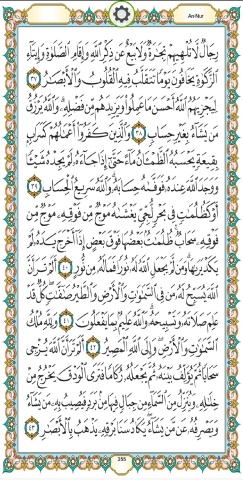 An-Nur
رِجَالٌ لَّا تُلْهِيهِمْ تِجَـٰرَةٌ وَلَا بَيْعٌ عَن ذِكْرِ ٱللَّهِ وَإِقَامِ ٱلصَّلَوٰةِ وَإِيتَآءِ
ٱلزَّكَوٰةِ يَخَافُونَ يَوْمًا تَتَقَلَّبُ فِيهِ ٱلْقُلُوبُ وَٱلْأَبْصَـٰرُ ٣٧
لِيَجْزِيَهُمُ ٱللَّهُ أَحْسَنَ مَا عَمِلُوا۟ وَيَزِيدَهُم مِّن فَضْلِهِۦ ۗ وَٱللَّهُ يَرْزُقُ
مَن يَشَآءُ بِغَيْرِ حِسَابٍ ٣٨ وَٱلَّذِينَ كَفَرُوٓا۟ أَعْمَـٰلُهُمْ كَسَرَابٍۭ
بِقِيعَةٍ يَحْسَبُهُ ٱلظَّمْـَٔانُ مَآءً حَتَّىٰٓ إِذَا جَآءَهُۥ لَمْ يَجِدْهُ شَيْـًٔا
وَوَجَدَ ٱللَّهَ عِندَهُۥ فَوَفَّىٰهُ حِسَابَهُۥ ۗ وَٱللَّهُ سَرِيعُ ٱلْحِسَابِ ٣٩
أَوْ كَظُلُمَـٰتٍ فِى بَحْرٍ لُّجِّىٍّ يَغْشَىٰهُ مَوْجٌ مِّن فَوْقِهِۦ مَوْجٌ مِّن
فَوْقِهِۦ سَحَابٌ ۚ ظُلُمَـٰتٌۢ بَعْضُهَا فَوْقَ بَعْضٍ إِذَآ أَخْرَجَ يَدَهُۥ لَمْ
يَكَدْ يَرَىٰهَا ۗ وَمَن لَّمْ يَجْعَلِ ٱللَّهُ لَهُۥ نُورًا فَمَا لَهُۥ مِن نُّورٍ ٤٠ أَلَمْ تَرَ أَنَّ
ٱللَّهَ يُسَبِّحُ لَهُۥ مَن فِى ٱلسَّمَـٰوَٰتِ وَٱلْأَرْضِ وَٱلطَّيْرُ صَـٰٓفَّـٰتٍ ۖ كُلٌّ قَدْ
عَلِمَ صَلَاتَهُۥ وَتَسْبِيحَهُۥ ۗ وَٱللَّهُ عَلِيمٌۢ بِمَا يَفْعَلُونَ ٤١ وَلِلَّهِ مُلْكُ
ٱلسَّمَـٰوَٰتِ وَٱلْأَرْضِ ۖ وَإِلَى ٱللَّهِ ٱلْمَصِيرُ ٤٢ أَلَمْ تَرَ أَنَّ ٱللَّهَ يُزْجِى
سَحَابًا ثُمَّ يُؤَلِّفُ بَيْنَهُۥ ثُمَّ يَجْعَلُهُۥ رُكَامًا فَتَرَى ٱلْوَدْقَ يَخْرُجُ مِنْ
خِلَـٰلِهِۦ وَيُنَزِّلُ مِنَ ٱلسَّمَآءِ مِن جِبَالٍ فِيهَا مِنۢ بَرَدٍ فَيُصِيبُ بِهِۦ مَن يَشَآءُ
وَيَصْرِفُهُۥ عَن مَّن يَشَآءُ ۖ يَكَادُ سَنَا بَرْقِهِۦ يَذْهَبُ بِٱلْأَبْصَـٰرِ ٤٣
355